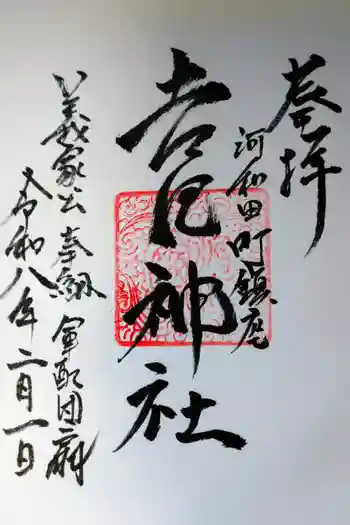 奉拝
河和田町鎮座
吉田神社
義家公奉納軍配団扇
令和八年二月一日